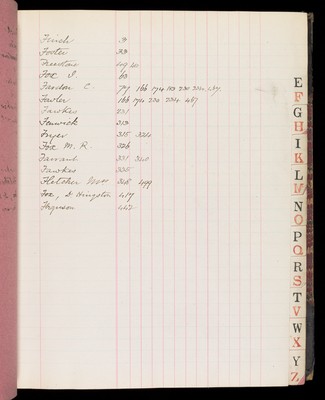 Finish 3
Foster 33
Freestone 49 40
Fox J. 60
Fardon C. 79 166 174 183 230 234 267
Fowler 166 174 230 234 267
Fawkes 231
Fenwick 313
Fryer 315 324
Fox M. R. 326
Farrant 331 340
Fawkes 335
Fletcher 368 499
Fox, D Kingston 417
Ferguson
E
F
G
H
I
K
L
M
N
O
P
Q
R
S
T
V
W
X
Y
Z